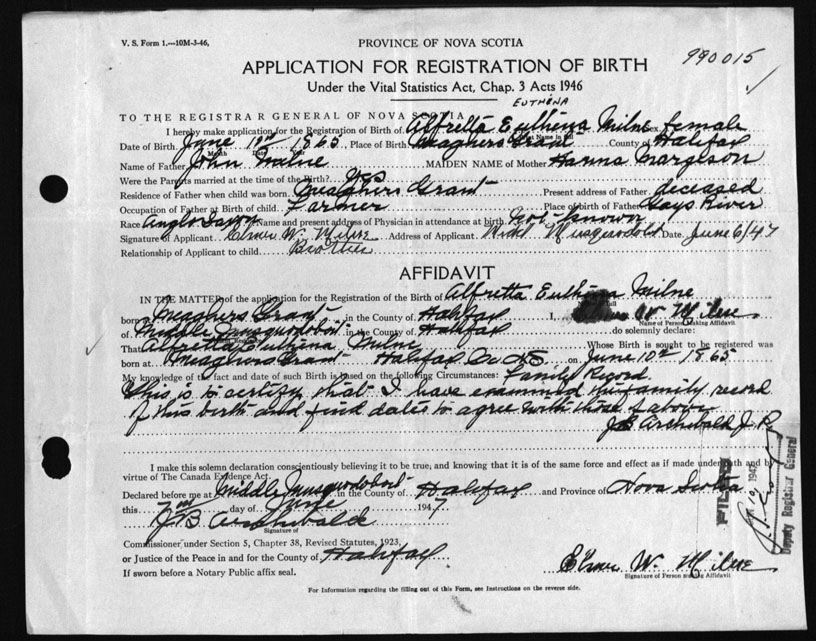 V. S. Form 1.—10M-3-46.
PROVINCE OF NOVA SCOTIA
990015
APPLICATION FOR REGISTRATION OF BIRTH
Under the Vital Statistics Act, Chap. 3 Acts 1946
EUTHENA
TO THE REGISTRAR GENERAL OF NOVA SCOTIA
I hereby make application for the Registration of Birth of Alfretta Euthena Milne sex female
Date of Birth June 10th 1865 Place of Birth Meaghers Grant County of Halifax
Month Date Year
Name of Father John Milne MAIDEN NAME of Mother Hanna Margeson
Were the Parents married at the time of the Birth? Yes
Residence of Father when child was born Meaghers Grant Present address of Father deceased
Occupation of Father at Birth of child Farmer Place of birth of Father Gays River
Race Anglo Saxon Name and present address of Physician in attendance at birth not known
Signature of Applicant Elmer W. Milne Address of Applicant Middl Musquodobt Date June 6/47
Relationship of Applicant to child Brother
AFFIDAVIT
IN THE MATTER of the application for the Registration of the Birth of Alfretta Euthena Milne
born at Meaghers Grant in the County of Halifax I, Elmer W Milne
Name of Person Making Affidavit
of Middle Musquodoboit in the County of Halifax do solemnly declare:
That Alfretta Euthena Milne Whose Birth is sought to be registered was
born at Meaghers Grant Halifax Co NS on June 10th 1865
My knowledge of the fact and date of such Birth is based on the following Circumstances: Family Record
This is to certify that I have examined the family record
of this birth and find dates to agree with those of above
J B Archibald J. P.
I make this solemn declaration conscientiously believing it to be true, and knowing that it is of the same force and effect as if made under oath and by
virtue of The Canada Evidence Act.
Declared before me at Middle Musquodoboit in the County of Halifax and Province of Nova Scotia
this day of June 1947
J B Archibald
Signature of
Commissioner under Section 5, Chapter 38, Revised Statutes, 1923.
or Justice of the Peace in and for the County of Halifax
If sworn before a Notary Public affix seal.
Elmer W. Milne
Signature of Person making Affidavit
For Information regarding the filling out of this Form, see Instructions on the reverse side.
FILED
1947
Deputy Registrar General